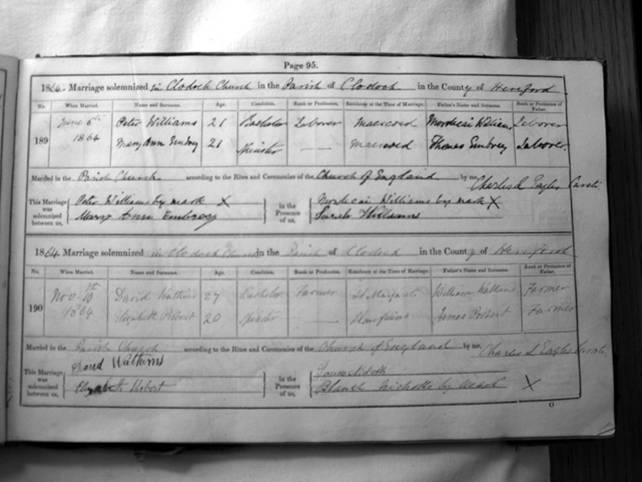 Page 95.
1864. Marriage solemnized in Clodock Church in the Parish of Clodock in the County of Hereford
No. When Married. Name and Surname. Age. Condition. Rank or Profession. Residence at the Time of Marriage. Father's Name and Surname. Rank or Profession of Father.
189 June 6th 1864 Peter Williams 21 Bachelor Labourer Maescoed Mordecai Williams Labourer
Mary Ann Embrey 21 Spinster — Maescoed Thomas Embrey Labourer
Married in the Parish Church according to the Rites and Ceremonies of the Church of England by me, Charles L Eagles
This Marriage was solemnized between us, Peter Williams by mark X in the Presence of us, Mordecai Williams by mark X
Mary Ann Embrey Sarah Williams
1864 Marriage solemnized in Clodock Church in the Parish of Clodock in the County of Hereford
No. When Married. Name and Surname. Age. Condition. Rank or Profession. Residence at the Time of Marriage. Father's Name and Surname. Rank or Profession of Father.
190 Nov 1864 David Watkins 27 Bachelor Farmer St Margarets William Watkins Farmer
Elizabeth 20 Spinster — James Farmer
Married in the Parish Church according to the Rites and Ceremonies of the Church of England by me, Charles L Eagles
This Marriage was solemnized between us, David Watkins in the Presence of us,
Elizabeth Blanch by X
O